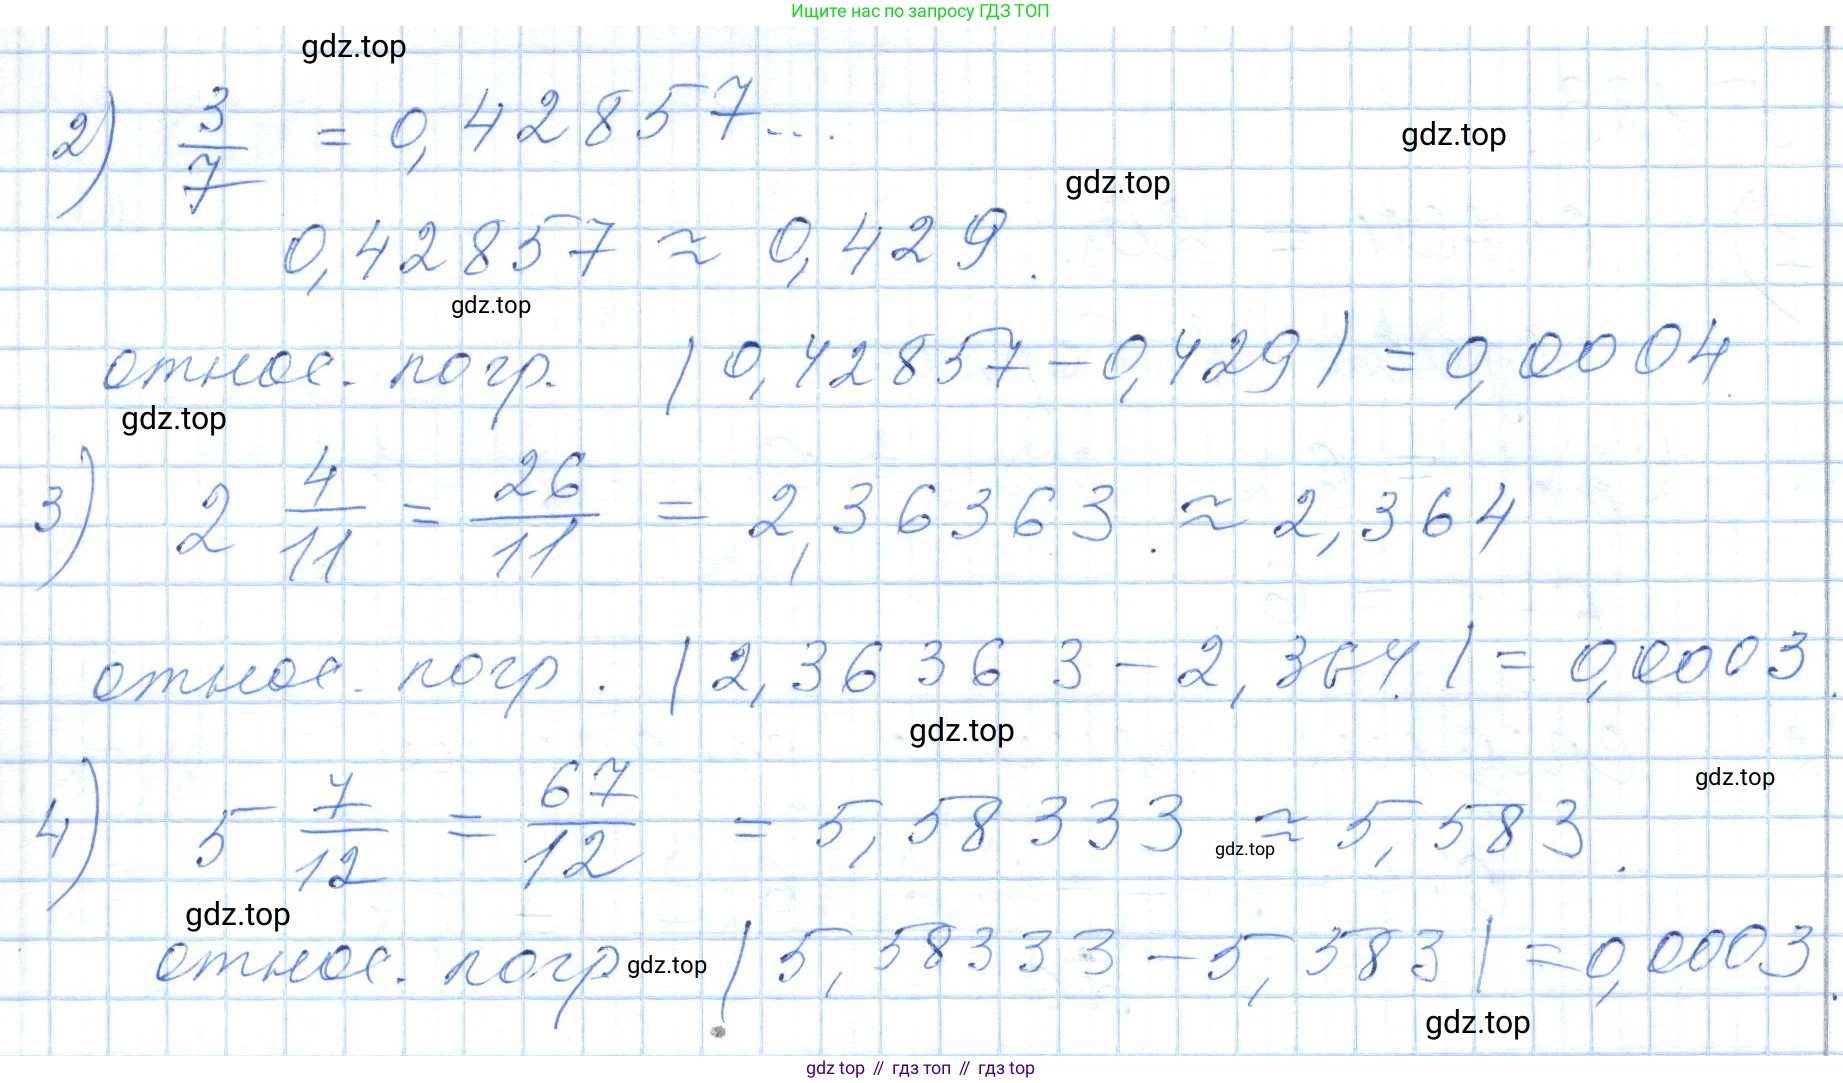 Ищите нас по запросу ГДЗ ТОП
gdz.top
2) 3/7 = 0,42857...
gdz.top
gdz.top
0,42857 ≈ 0,429.
gdz.top
относ. погр. |0,42857 - 0,429| = 0,0004.
gdz.top
3) 2 4/11 = 26/11 = 2,36363. ≈ 2,364
относ. погр. |2,36363 - 2,364.| = 0,0003.
gdz.top
gdz.top
4) 5 7/12 = 67/12 = 5,58333 ≈ 5,583.
gdz.top
gdz.top
относ. погр |5,58333 - 5,583| = 0,0003.
gdz.top
gdz.top
gdz top // гдз топ // гдз top